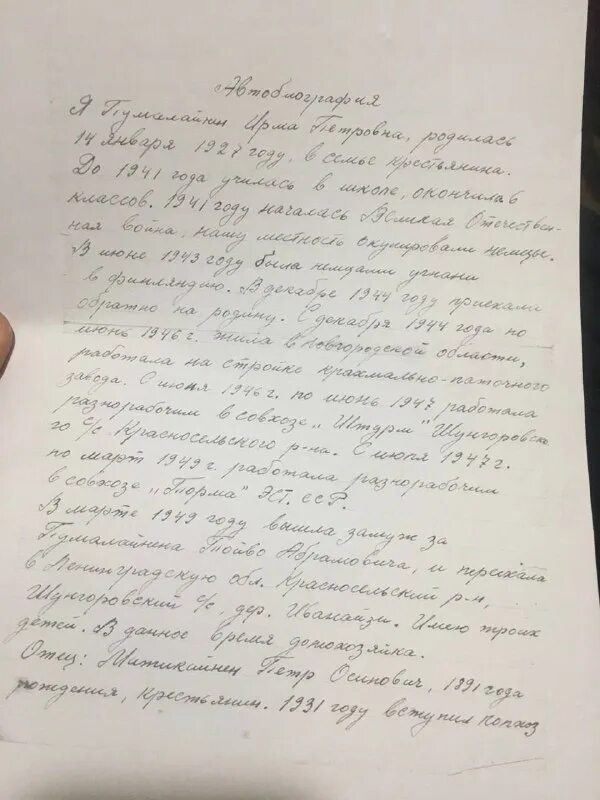 Автобиография
Я Пумалайнен Ирма Петровна, родилась
14 января 1927 году, в семье крестьянина.
До 1941 года училась в школе, окончила 6
классов. 1941 году началась Великая Отечествен-
ная война, нашу местность окупировали немцы.
В июне 1943 году была немцами угнани
в Финляндию. В декабре 1944 году приехали
обратно на родину. С декабря 1944 года по
июнь 1946 г. жила в Новгородской области,
работала на стройке крахмально-паточного
завода. С июня 1946 г. по июнь 1947 работала
разнорабочим в совхозе „Штурм" Шунгоровско
го с/с Красносельского р-на. С июля 1947 г.
по март 1949 г. работала разнорабочим
в совхозе „Торма" Эст. ССР.
В марте 1949 году вышла замуж за
Пумалайнена Тойво Абрамовича, и переехала
в Ленинградскую обл. Красносельский р-н,
Шунгоровский с/с, дер. Иванайзи. Имею троих
детей. В данное время домохозяйка.
Отец: Митикайнен Петр Осипович, 1891 года
рождения, крестьянин. 1931 году вступил колхоз